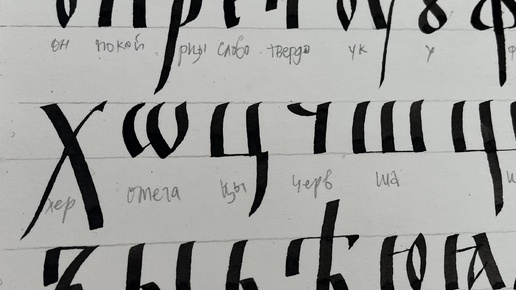 он покой рцы слово твердо ук у
Х Ѡ Ц Ч Ш Щ
хер омега цы черв ша
Ъ Ы Ь Ѣ Ю